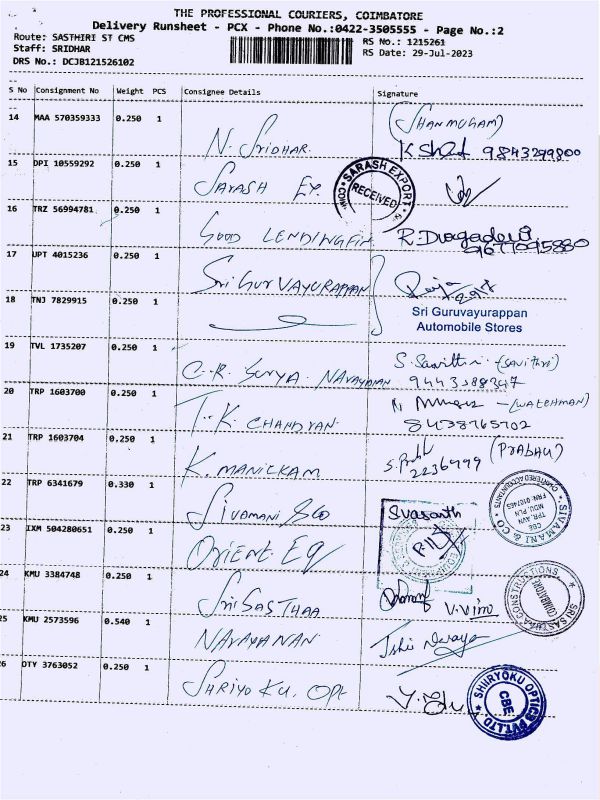 THE PROFESSIONAL COURIERS, COIMBATORE
Delivery Runsheet - PCX - Phone No.:0422-3505555 - Page No.:2
Route: SASTHIRI ST CMS
RS No.: 1215261
Staff: SRIDHAR
RS Date: 29-Jul-2023
DRS No.: DCJB121526102
S No Consignment No Weight PCS Consignee Details Signature
14 MAA 570359333 0.250 1 N. SRIDHAR. (SHANMUGAM)
9843299800
15 DPI 10559292 0.250 1 SARASH EX.
SARASH EXPORT
RECEIVED
16 TRZ 56994781 0.250 1 GOOD LENDINGFIN R. Durgadevi
9677095880
17 UPT 4015236 0.250 1 Sri GURVAYURAPPAN
18 TNJ 7829915 0.250 1
Sri Guruvayurappan
Automobile Stores
19 TVL 1735207 0.250 1 C.R. SURYA. NARAYANAN S. Savithri (SAVITHRI)
20 TRP 1603700 0.250 1 T. K. CHANDRAN. (WATCHMAN)
8438765702
21 TRP 1603704 0.250 1 K. MANICKAM (PRABHU)
2236999
22 TRP 6341679 0.330 1 SIVAMANI &CO
SIVAMANI & CO
CHARTERED ACCOUNTANTS
23 IXM 504280651 0.250 1 ORIENT EQ Svasanth
24 KMU 3384748 0.250 1 SRI SASTHAA V. Vim
SRI SASTHA CONSTRUCTIONS
COIMBATORE
25 KMU 2573596 0.540 1 NARAYANAN
26 OTY 3763052 0.250 1 SHRIYO KU. OPt
SHURYOKU OPTICS PVT.LTD
CBE